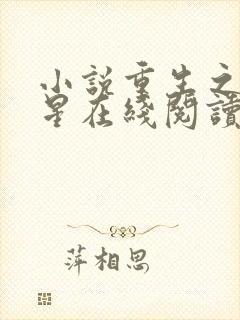 小説重生之
星在綫閱讀
萍相思